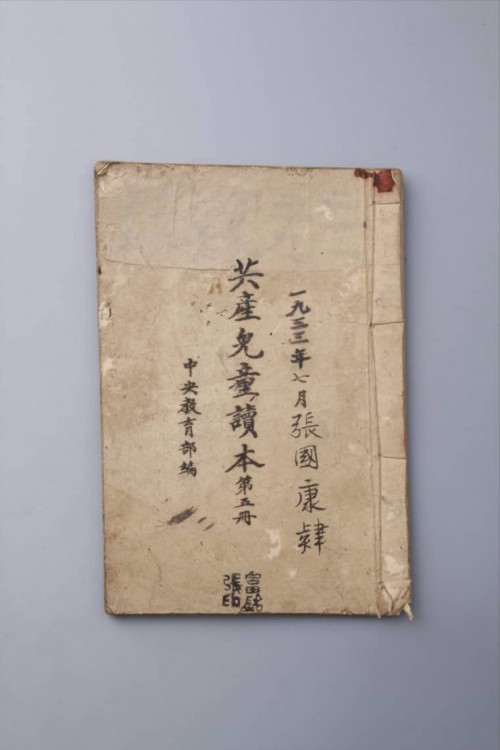 一九三三年七月張國康肄
共產兒童讀本第五冊
中央教育部編
富
張印